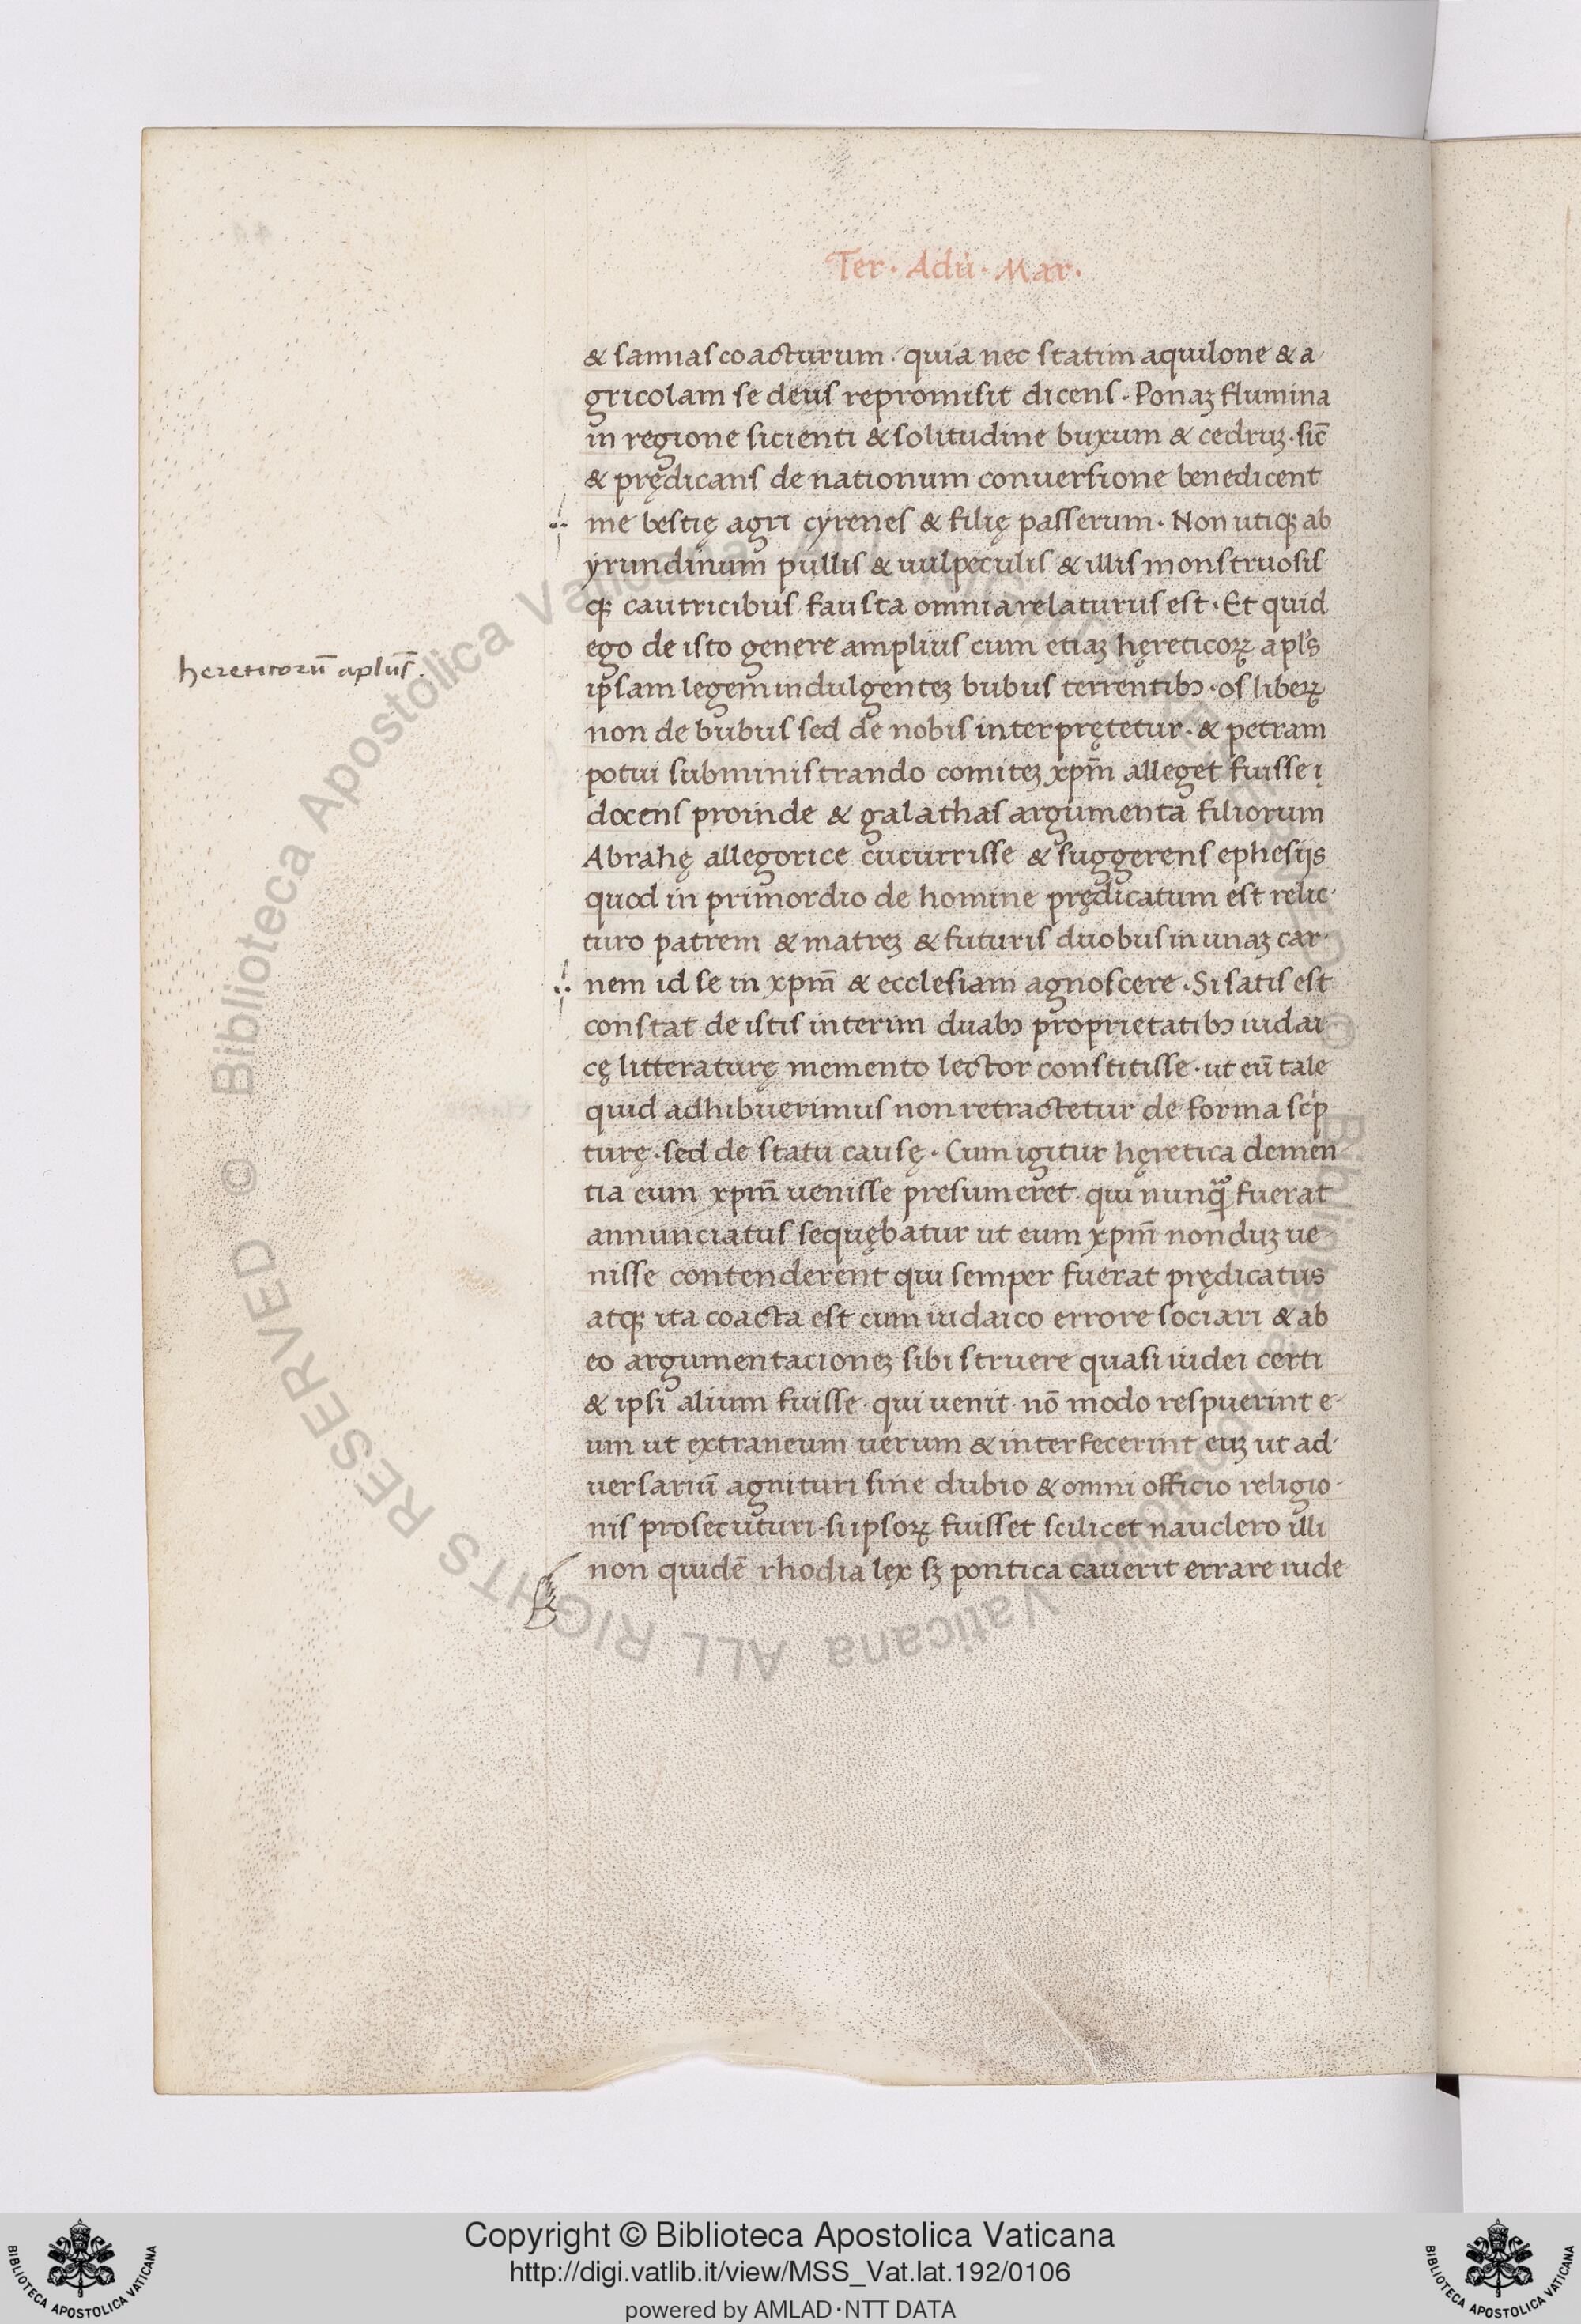 Ter · Adū · Mar ·
& samias coacturum · quia nec statim aquilone & a
gricolam se deus repromisit dicens · Ponaꝫ flumina
in regione sicienti & solitudine buxum & cedruꝫ · sic̄
& prędicans de nationum conuersione benedicent
me bestię agri cyrenes & filię passerum · Non utiqꝫ ab
yrundinum pullis & uulpeculis & illis monstruosis
qꝫ cautricibus fausta omnia relaturus est · Et quid
ego de isto genere amplius cum etiaꝫ hęreticoꝝ apl's
hereticorū aplus̄ .
ip̄sam legem indulgenteꝫ bubus terrentibꝰ · os libeꝝ
non de bubus sed de nobis interprętetur · & petram
potui subministrando comiteꝫ xpm̄ alleget fuisse į
docens proinde & galathas argumenta filiorum
Abrahę allegorice cucurrisse & suggerens ephesijs
quod in primordio de homine prędicatum est relic
turo patrem & matreꝫ & futuris duobus in unaꝫ car
nem id se in xpm̄ & ecclesiam agnoscere · Si satis est
constat de istis interim duabꝰ proprietatibꝰ iudai
cę litteraturę memento lector constitisse · ut cū tale
quid adhibuerimus non retractetur de forma scrip
turę · sed de statu causę · Cum igitur hęretica demen
tia eum xpm̄ uenisse presumeret · qui nunqᷓ fuerat
annunciatus sequębatur ut eum xpm̄ nonduꝫ ue
nisse contenderent qui semper fuerat prędicatus
atqꝫ ita coacta est cum iudaico errore sociari & ab
eo argumentacioneꝫ sibi struere quasi iudei certi
& ipsi alium fuisse · qui uenit · nō modo respuerint e
um ut extraneum uerum & interfecerint euꝫ ut ad
uersariū agnituri sine dubio & omni officio religio
nis prosecuturi · si ipsoꝝ fuisset scilicet nauclero illi
non quidē rhodia lęx sꝫ pontica cauerit errare iude
© Biblioteca Apostolica Vaticana ALL RIGHTS RESERVED
Copyright © Biblioteca Apostolica Vaticana
http://digi.vatlib.it/view/MSS_Vat.lat.192/0106
powered by AMLAD·NTT DATA
BIBLIOTECA APOSTOLICA VATICANA
BIBLIOTECA APOSTOLICA VATICANA